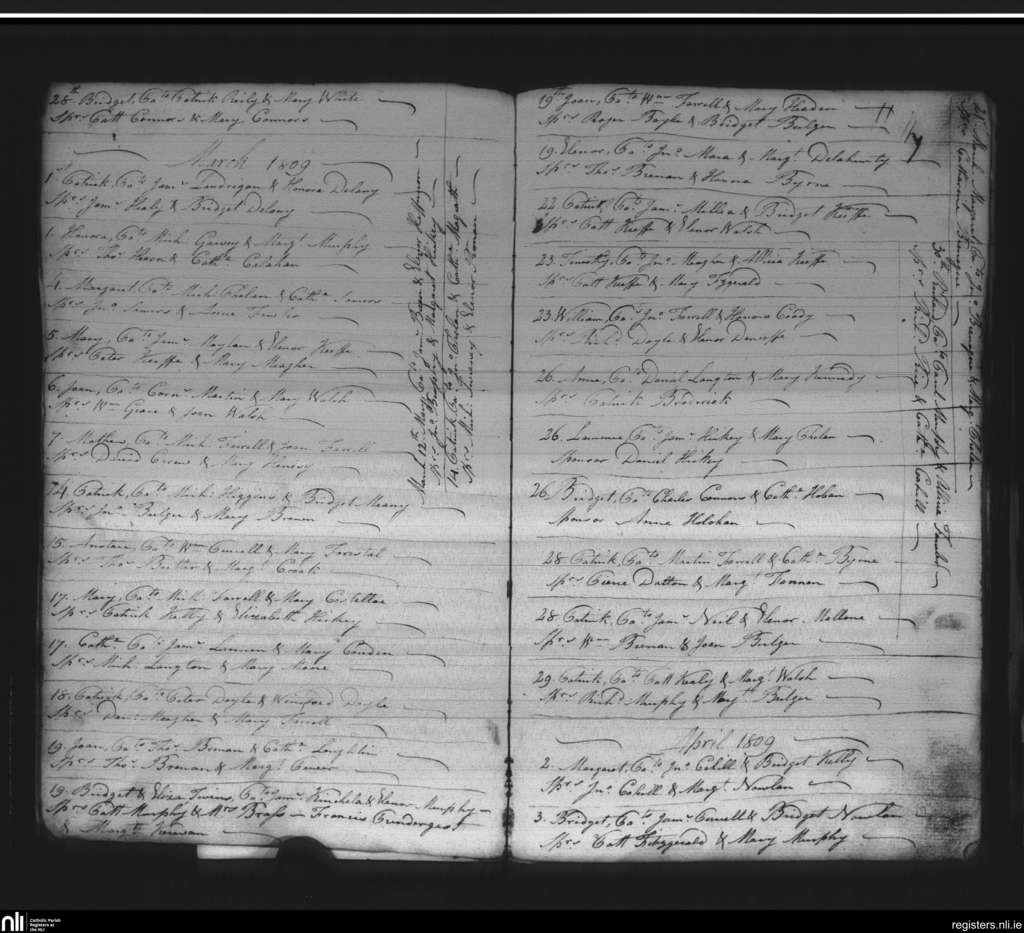 28th Bridget, Ca. to Patrick Reily & Mary White
Sprs Patt Connors & Mary Connors
March 1809
1st Patrick, Ca. to Jams Londregan & Honora Delany
Sprs Jams Healy & Bridget Delany
1. Honora, Ca. to Mich. Garvey & Margt Murphy
Sprs Thos Hearn & Cathe Calahan
4. Margaret Ca. to Mich. Phelan & Cathe Somers
Sprs Jno Somers &
5. Mary, Ca. to Jams & Elenor Keeffe
Sprs Peter Keeffe & Mary Meagher
6. Joan, Ca. to Corns Martin & Mary Walsh
Sprs Wm Grace & Joan Walsh
7. Mathew, Ca. to Mich. Farrell & Joan Farrell
Sprs David & Mary Henesy
Patrick, Ca. to Mich. Higgins & Bridget Meany
Sprs Jno Bulger & Mary Brenen
15. Anstace, Ca. to Wm & Mary Forestal
Sprs Thos Butler & Margt Croak
17. Mary, Ca. to Mich. Farrell & Mary Costelloe
Sprs Patrick Kelly & Elizabeth Hickey
17. Cathe Ca. to Jams Lennon & Mary
Sprs Mich. Langton & Mary
18. Patrick, Ca. to Peter Doyle & Winiford Doyle
Sprs Danl Meagher & Mary Farrell
19. Joan, Ca. to Thos Brenan & Cathe Loughlin
Sprs Thos Brenan & Margt
19. Bridget & Eliza Twins, Ca. to Jams Kinchela & Elenor Murphy
Sprs Patt Murphy & Mrs Brass Francis Prendergast
& Margt
March 12th Mary Ca. to Jams Bryan & Elenor
Sprs Jno Murphy & Margaret
14. Patrick Ca. to Jno Phelan & Cathe Magrath
Sprs Mich. Sweeny & Elenor
19th Joan, Ca. to Wm Farrell & Mary Headen
Sprs Roger Doyle & Bridget Bulger
19. Elenor, Ca. to Jno Mara & Margt Delahunty
Sprs Thos Brenan & Honora Byrne
22. Patrick, Ca. to Jams Mullia & Bridget Keeffe
Sprs Patt Keeffe & Elenor Walsh
23. Timothy, Ca. to Jno Meagher & Allicia Keeffe
Sprs Patt Keeffe & Mary Fzgerald
23. William, Ca. to Jno Farrell & Honora Coady
Sprs Richd Doyle & Elenor
26. Anne, Ca. to Danial Langton & Mary Kennedy
Sprs Patrick Broderick
26. Laurence, Ca. to Jams Hickey & Mary Phelan
Sponsor Daniel Hickey
26. Bridget, Ca. to Charles Connors & Cathe Hoban
Sponsor Anne Holohan
28 Patrick, Ca. to Martin Farrell & Cathe Byrne
Sprs Pierce Dalton & Margt
28. Patrick, Ca. to Jams Neil & Elenor Mallone
Sprs Wm Brenan & Joan Bulger
29 Patrick, Ca. to Patt Kealy & Margt Walsh
Sprs Richd Murphy & Margt Bulger
April 1809
2. Margaret, Ca. to Jno Cahill & Bridget Kelly
Sprs Jno Cahill & Margt Nowlan
3. Bridget, Ca. to Jams & Bridget Nowlan
Sprs Patt Fitzgerald & Mary Murphy
21. March Margaret Ca. to Jno Brenagen & Margt Phelan
Sprs Catharine Brenagen
30th Ca. to Paul Murphy & Alline
Sprs & Cathe Cahill
nli
Catholic Parish
Registers at
the NLI
registers.nli.ie